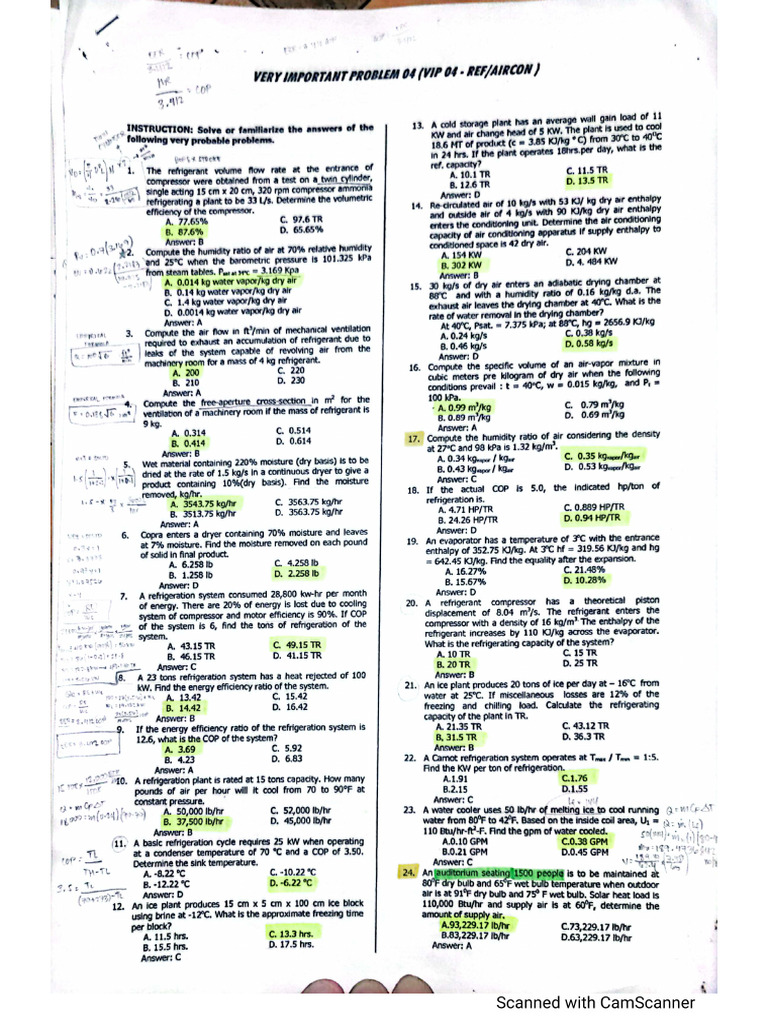 VERY IMPORTANT PROBLEM 04 (VIP 04 - REF/AIRCON )
INSTRUCTION: Solve or familiarize the answers of the
following very probable problems.
1. The refrigerant volume flow rate at the entrance of
compressor were obtained from a test on a twin cylinder,
single acting 15 cm x 20 cm, 320 rpm compressor ammonia
refrigerating a plant to be 33 L/s. Determine the volumetric
efficiency of the compressor.
A. 77.65% C. 97.6 TR
B. 87.6% D. 65.65%
Answer: B
2. Compute the humidity ratio of air at 70% relative humidity
and 25°C when the barometric pressure is 101.325 kPa
from steam tables. = 3.169 Kpa
A. 0.014 kg water vapor/kg dry air
B. 0.14 kg water vapor/kg dry air
C. 1.4 kg water vapor/kg dry air
D. 0.0014 kg water vapor/kg dry air
Answer: A
3. Compute the air flow in ft³/min of mechanical ventilation
required to exhaust an accumulation of refrigerant due to
leaks of the system capable of revolving air from the
machinery room for a mass of 4 kg refrigerant.
A. 200 C. 220
B. 210 D. 230
Answer: A
4. Compute the free-aperture cross-section in m² for the
ventilation of a machinery room if the mass of refrigerant is
9 kg.
A. 0.314 C. 0.514
B. 0.414 D. 0.614
Answer: B
5. Wet material containing 220% moisture (dry basis) is to be
dried at the rate of 1.5 kg/s in a continuous dryer to give a
product containing 10%(dry basis). Find the moisture
removed, kg/hr.
A. 3543.75 kg/hr C. 3563.75 kg/hr
B. 3513.75 kg/hr D. 3563.75 kg/hr
Answer: A
6. Copra enters a dryer containing 70% moisture and leaves
at 7% moisture. Find the moisture removed on each pound
of solid in final product.
A. 6.258 lb C. 4.258 lb
B. 1.258 lb D. 2.258 lb
Answer: D
7. A refrigeration system consumed 28,800 kw-hr per month
of energy. There are 20% of energy is lost due to cooling
system of compressor and motor efficiency is 90%. If COP
of the system is 6, find the tons of refrigeration of the
system.
A. 43.15 TR C. 49.15 TR
B. 46.15 TR D. 41.15 TR
Answer: C
8. A 23 tons refrigeration system has a heat rejected of 100
kW. Find the energy efficiency ratio of the system.
A. 13.42 C. 15.42
B. 14.42 D. 16.42
Answer: B
9. If the energy efficiency ratio of the refrigeration system is
12.6, what is the COP of the system?
A. 3.69 C. 5.92
B. 4.23 D. 6.83
Answer: A
10. A refrigeration plant is rated at 15 tons capacity. How many
pounds of air per hour will it cool from 70 to 90°F at
constant pressure.
A. 50,000 lb/hr C. 52,000 lb/hr
B. 37,500 lb/hr D. 45,000 lb/hr
Answer: B
11. A basic refrigeration cycle requires 25 kW when operating
at a condenser temperature of 70 °C and a COP of 3.50.
Determine the sink temperature.
A. -8.22 °C C. -10.22 °C
B. -12.22 °C D. -6.22 °C
Answer: D
12. An ice plant produces 15 cm x 5 cm x 100 cm ice block
using brine at -12°C. What is the approximate freezing time
per block?
A. 11.5 hrs. C. 13.3 hrs.
B. 15.5 hrs. D. 17.5 hrs.
Answer: C
13. A cold storage plant has an average wall gain load of 11
KW and air change head of 5 KW. The plant is used to cool
18.6 MT of product (c = 3.85 KJ/kg °C) from 30°C to 40°C
in 24 hrs. If the plant operates 18hrs.per day, what is the
ref. capacity?
A. 10.1 TR C. 11.5 TR
B. 12.6 TR D. 13.5 TR
Answer: D
14. Re-circulated air of 10 kg/s with 53 KJ/ kg dry air enthalpy
and outside air of 4 kg/s with 90 KJ/kg dry air enthalpy
enters the conditioning unit. Determine the air conditioning
capacity of air conditioning apparatus if supply enthalpy to
conditioned space is 42 dry air.
A. 154 KW C. 204 KW
B. 302 KW D. 4. 484 KW
Answer: B
15. 30 kg/s of dry air enters an adiabatic drying chamber at
88°C and with a humidity ratio of 0.16 kg/kg d.a. The
exhaust air leaves the drying chamber at 40°C. What is the
rate of water removal in the drying chamber?
At 40°C, Psat. = 7.375 kPa; at 88°C, hg = 2656.9 KJ/kg
A. 0.24 kg/s C. 0.38 kg/s
B. 0.46 kg/s D. 0.58 kg/s
Answer: D
16. Compute the specific volume of an air-vapor mixture in
cubic meters per kilogram of dry air when the following
conditions prevail : t = 40°C, w = 0.015 kg/kg, and Pt =
100 kPa.
A. 0.99 m³/kg C. 0.79 m³/kg
B. 0.89 m³/kg D. 0.69 m³/kg
Answer: A
17. Compute the humidity ratio of air considering the density
at 27°C and 98 kPa is 1.32 kg/m³.
A. 0.34 kgvapor / kgair C. 0.35 kgvapor/kgair
B. 0.43 kgvapor / kgair D. 0.53 kgvapor/kgair
Answer: C
18. If the actual COP is 5.0, the indicated hp/ton of
refrigeration is.
A. 4.71 HP/TR C. 0.889 HP/TR
B. 24.26 HP/TR D. 0.94 HP/TR
Answer: D
19. An evaporator has a temperature of 3°C with the entrance
enthalpy of 352.75 KJ/kg. At 3°C hf = 319.56 KJ/kg and hg
= 642.45 KJ/kg. Find the equality after the expansion.
A. 16.27% C. 21.48%
B. 15.67% D. 10.28%
Answer: D
20. A refrigerant compressor has a theoretical piston
displacement of 8.04 m³/s. The refrigerant enters the
compressor with a density of 16 kg/m³ The enthalpy of the
refrigerant increases by 110 KJ/kg across the evaporator.
What is the refrigerating capacity of the system?
A. 10 TR C. 15 TR
B. 20 TR D. 25 TR
Answer: B
21. An ice plant produces 20 tons of ice per day at – 16°C from
water at 25°C. If miscellaneous losses are 12% of the
freezing and chilling load. Calculate the refrigerating
capacity of the plant in TR.
A. 21.35 TR C. 43.12 TR
B, 31.5 TR D. 36.3 TR
Answer: B
22. A Carnot refrigeration system operates at Tmax / Tmin = 1:5.
Find the KW per ton of refrigeration.
A.1.91 C.1.76
B.2.15 D.1.55
Answer: C
23. A water cooler uses 50 lb/hr of melting ice to cool running
water from 80°F to 42°F. Based on the inside coil area, U₁ =
110 Btu/hr-ft²-F. Find the gpm of water cooled.
A.0.10 GPM C.0.38 GPM
B.0.21 GPM D.0.45 GPM
Answer: C
24. An auditorium seating 1500 people is to be maintained at
80°F dry bulb and 65°F wet bulb temperature when outdoor
air is at 91°F dry bulb and 75° F wet bulb. Solar heat load is
110,000 Btu/hr and supply air is at 60°F, determine the
amount of supply air.
A.93,229.17 lb/hr C.73,229.17 lb/hr
B.83,229.17 lb/hr D.63,229.17 lb/hr
Answer: A
Scanned with CamScanner